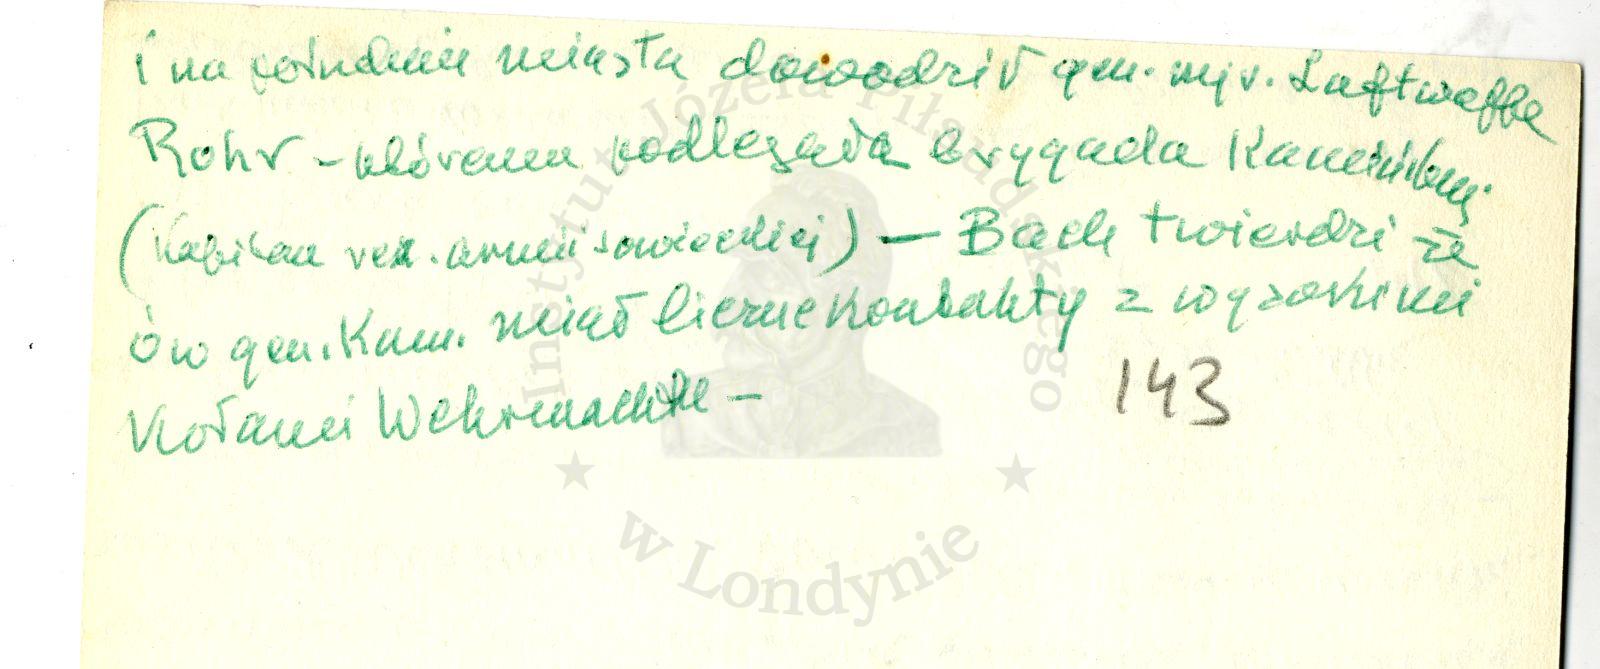 i na południu miasta dowodził gen. mjr. Luftwaffe
Rohr – któremu podlegała brygada Kamińskiej
(Kapitan rez. armii sowieckiej) — Bach twierdzi że
ów gen. Kam. miał liczne kontakty z wysokimi
kołami Wehrmachtu –
143
Instytut Józefa Piłsudskiego
w Londynie